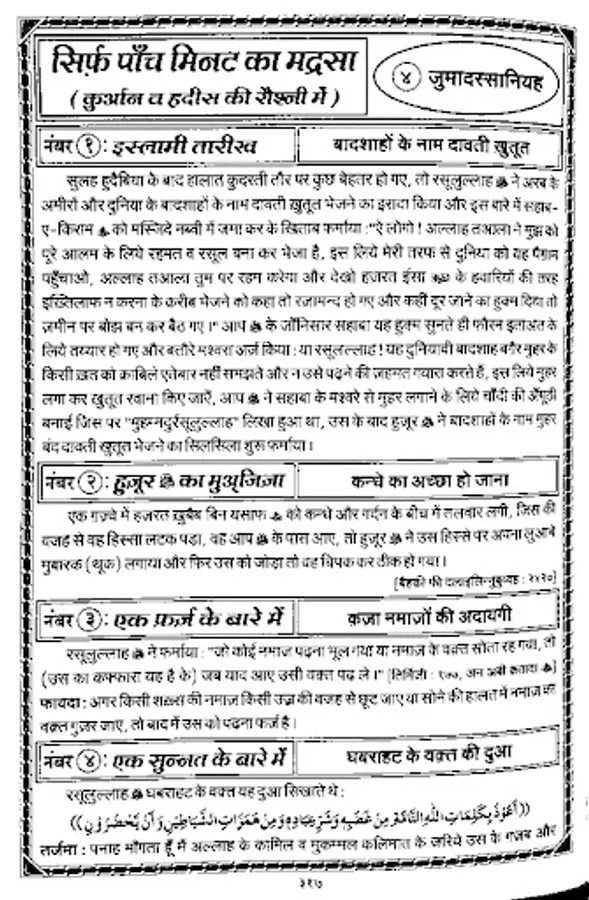 सिर्फ़ पाँच मिनट का मद्रसा
( क़ुर्आन व हदीस की रौश्नी में )
४ जुमादस्सानियह
नंबर १ : इस्लामी तारीख बादशाहों के नाम दावती ख़ुतूत
सुलह हुदैबिया के बाद हालात कुदरती तौर पर कुछ बेहतर हो गए, तो रसूलुल्लाह ﷺ ने अरब के
अमीरों और दुनिया के बादशाहों के नाम दावती ख़ुतूत भेजने का इरादा किया और इस बारे में सहाब-
ए-किराम को मस्जिदे नब्वी में जमा कर के खिताब फर्माया : "ऐ लोगो ! अल्लाह तआला ने मुझ को
पूरे आलम के लिये रहमत व रसूल बना कर भेजा है, इस लिये मेरी तरफ से दुनिया को यह पैग़ाम
पहुँचाओ, अल्लाह तआला तुम पर रहम करेगा और देखो हज़रत इंसा के हवारियों की तरह
इख्तिलाफ न करना के क़रीब भेजने को कहा तो रज़ामन्द हो गए और कहीं दूर जाने का हुक्म दिया तो
ज़मीन पर बोझ बन कर बैठ गए ।" आप ﷺ के जाँनिसार सहाबा यह हुक्म सुनते ही फौरन इताअत के
लिये तय्यार हो गए और बतौरे मश्वरा अर्ज़ किया : या रसूलल्लाह ! यह दुनियावी बादशाह बग़ैर मुहर के
किसी ख़त को क़ाबिले एतेबार नहीं समझते और न उसे पढ़ने की ज़हमत गवारा करते हैं, इस लिये मुहर
लगा कर ख़ुतूत रवाना किए जाएँ, आप ﷺ ने सहाबा के मश्वरे से मुहर लगाने के लिये चाँदी की अँगूठी
बनाई जिस पर "मुहम्मदुर्रसूलुल्लाह" लिखा हुआ था, उस के बाद हुज़ूर ﷺ ने बादशाहों के नाम मुहर
बंद दावती ख़ुतूत भेजने का सिलसिला शुरू फर्माया ।
नंबर २ : हुज़ूर ﷺ का मुअ्जिज़ा कन्धे का अच्छा हो जाना
एक ग़ज़्वे में हज़रत ख़ुबैब बिन यसाफ को कन्धे और गर्दन के बीच में तलवार लगी, जिस की
वजह से वह हिस्सा लटक पड़ा, वह आप ﷺ के पास आए, तो हुज़ूर ﷺ ने उस हिस्से पर अपना लुआबे
मुबारक (थूक) लगाया और फिर उस को जोड़ा तो वह चिपक कर ठीक हो गया ।
[बैहक़ी फी दलाइलिन्नुबुव्वह : २४२०]
नंबर ३ : एक फ़र्ज़ के बारे में क़ज़ा नमाज़ों की अदायगी
रसूलुल्लाह ﷺ ने फर्माया : "जो कोई नमाज़ पढ़ना भूल गया या नमाज़ के वक़्त सोता रह गया, तो
(उस का कफ्फारा यह है के) जब याद आए उसी वक़्त पढ़ ले ।" [तिर्मिज़ी : १७७, अन अबी क़तादा]
फायदा : अगर किसी शख़्स की नमाज़ किसी उज्र की वजह से छूट जाए या सोने की हालत में नमाज़ का
वक़्त गुज़र जाए, तो बाद में उस को पढ़ना फर्ज़ है ।
नंबर ४ : एक सुन्नत के बारे में घबराहट के वक़्त की दुआ
रसूलुल्लाह ﷺ घबराहट के वक़्त यह दुआ सिखाते थे :
((أَعُوْذُ بِكَلِمَاتِ اللّٰهِ التَّامَّةِ مِنْ غَضَبِهٖ وَشَرِّ عِبَادِهٖ وَمِنْ هَمَزَاتِ الشَّيَاطِيْنِ وَأَنْ يَّحْضُرُوْنِ))
तर्जमा : पनाह माँगता हूँ मैं अल्लाह के कामिल व मुकम्मल कलिमात के ज़रिये उस के गज़ब और
३१७